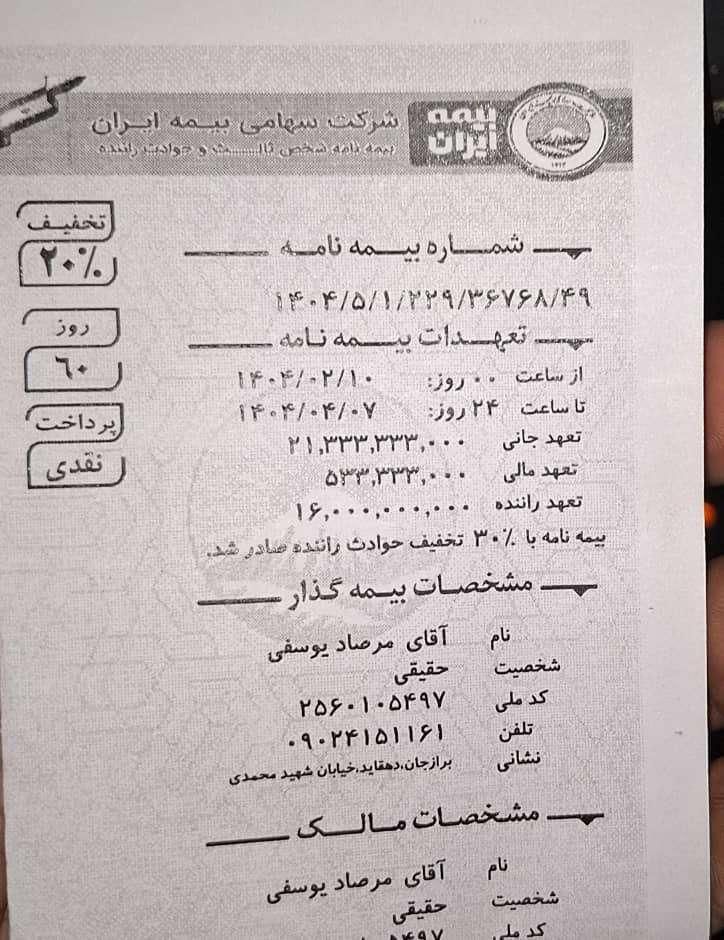 شرکت سهامی بیمه ایران
بیمه ایران
بیمه نامه شخص ثالث و حوادث راننده
تخفیف
۲۰٪
روز
۶۰
پرداخت
نقدی
شماره بیمه نامه
۱۴۰۴/۵/۱/۲۲۹/۳۶۷۶۸/۴۹
تعهدات بیمه نامه
از ساعت ۰۰ روز: ۱۴۰۴/۰۲/۱۰
تا ساعت ۲۴ روز: ۱۴۰۴/۰۴/۰۷
تعهد جانی ۲۱,۳۳۳,۳۳۳,۰۰۰
تعهد مالی ۵۳۳,۳۳۳,۰۰۰
تعهد راننده ۱۶,۰۰۰,۰۰۰,۰۰۰
بیمه نامه با ۳۰٪ تخفیف حوادث راننده صادر شد.
مشخصات بیمه گذار
نام آقای مرصاد یوسفی
شخصیت حقیقی
کد ملی ۲۵۶۰۱۰۵۴۹۷
تلفن ۰۹۰۲۴۱۵۱۱۶۱
نشانی برازجان,دهقاید,خیابان شهید محمدی
مشخصات مالک
نام آقای مرصاد یوسفی
شخصیت حقیقی
کد ملی